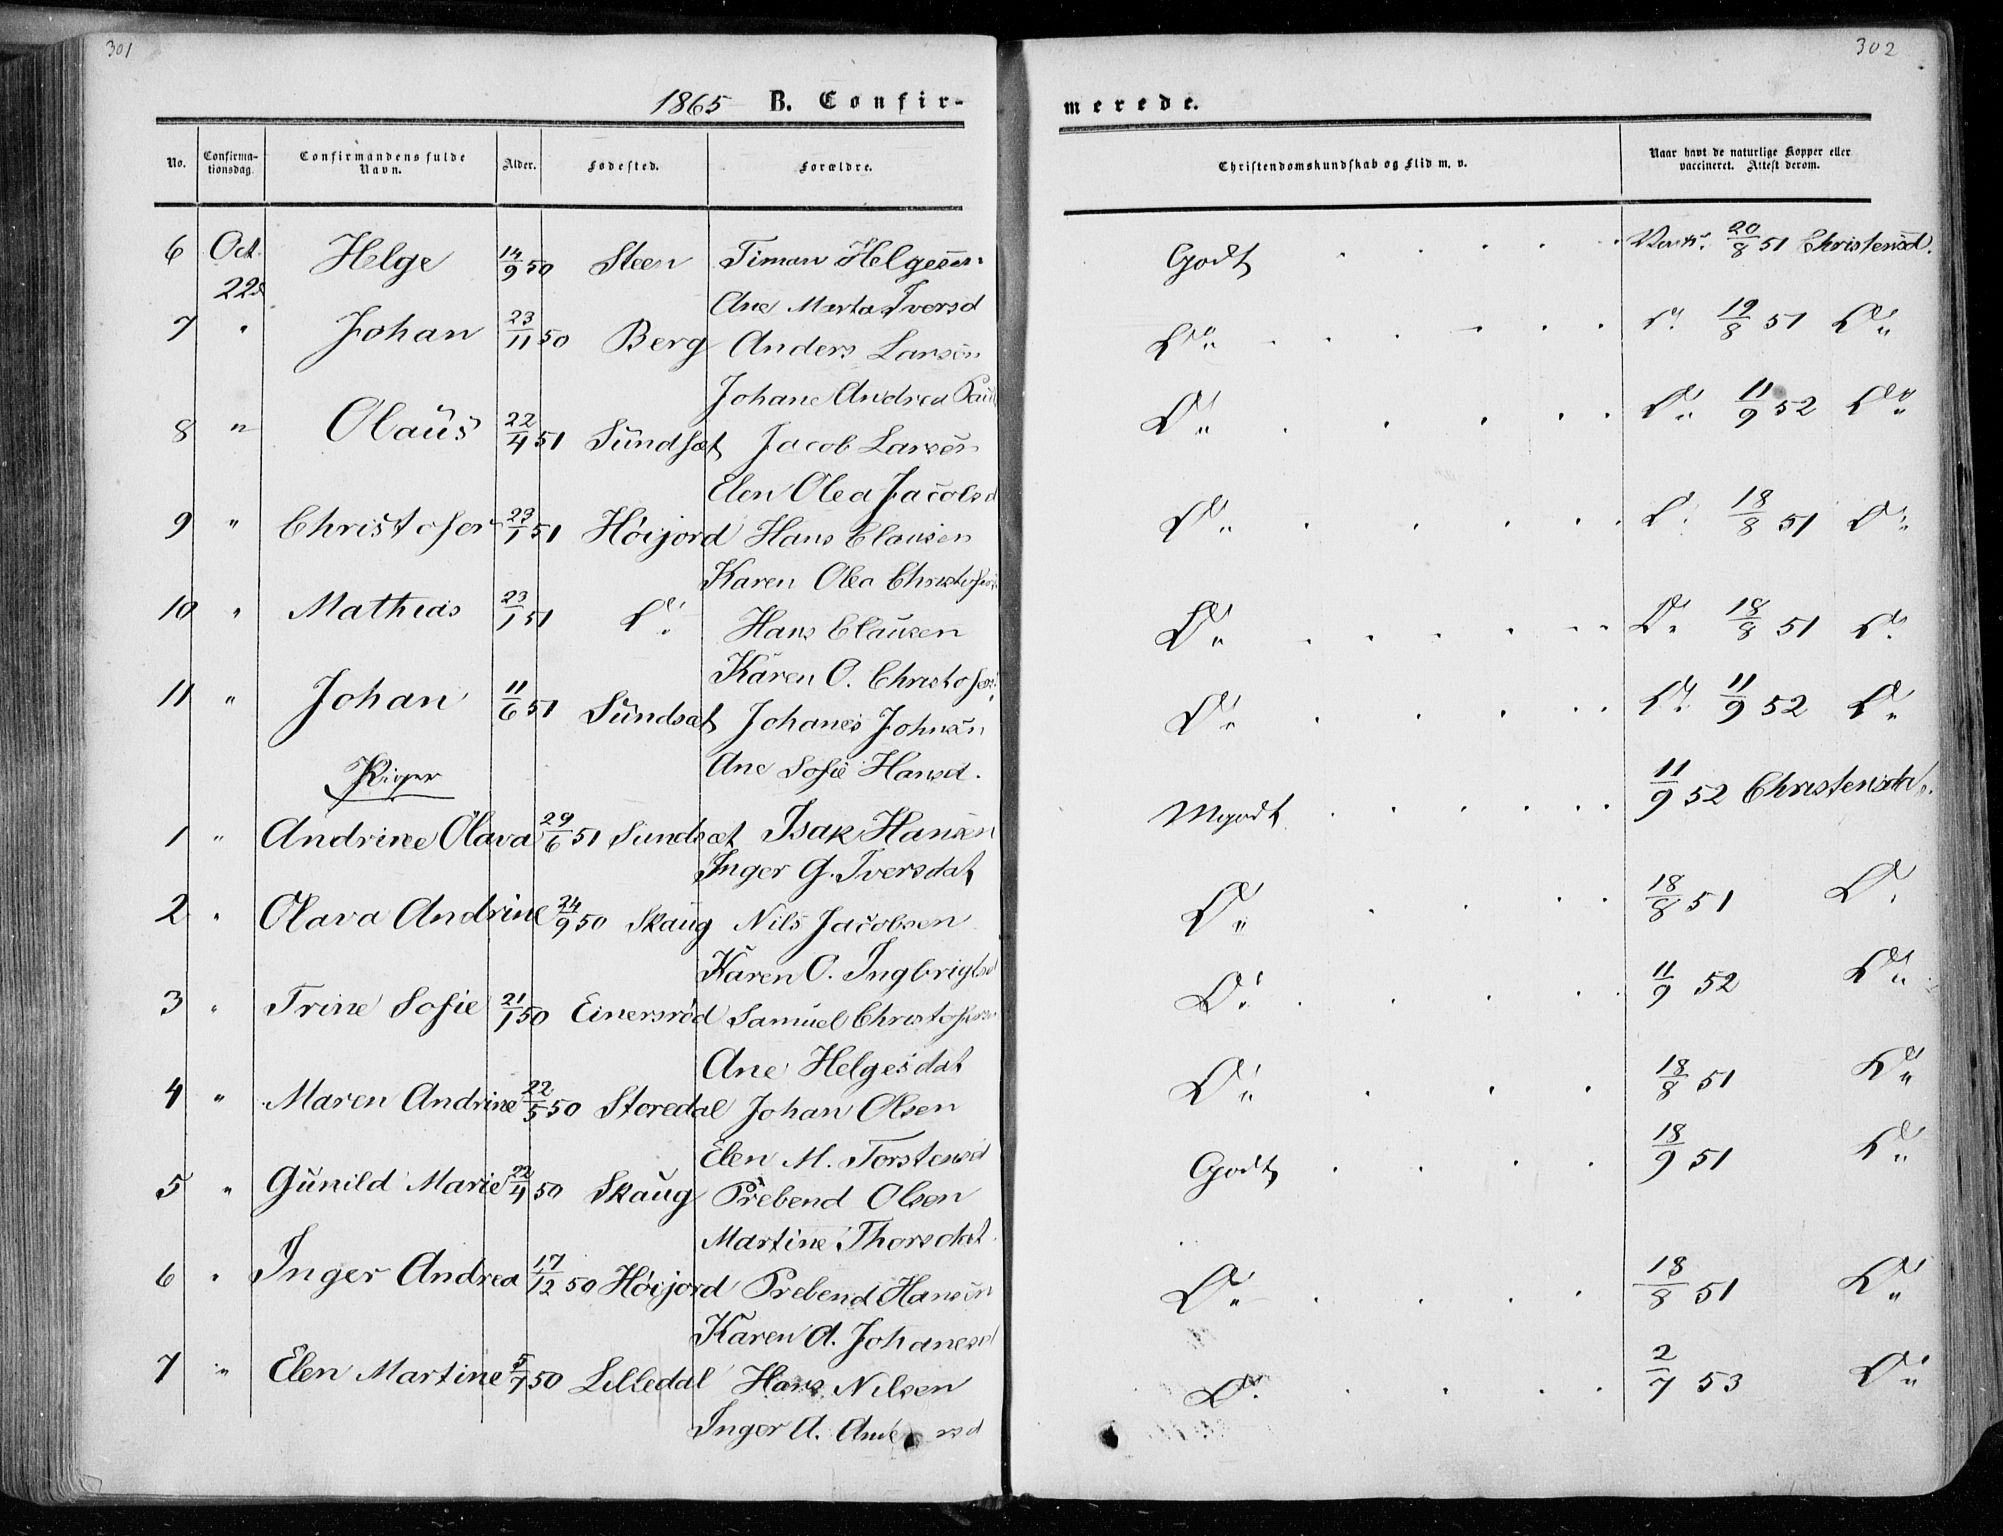 301
302
1865 B. Confir-
merede.
No. Confirma-tionsdag. Confirmandens fulde Navn. Alder. Fødested. Forældre. Christendomskundskab og Flid m. v. Naar havt de naturlige Kopper eller vaccineret. Attest derom.
6 Oct. 22d Helge 14/9 50 Steen Timan Helgesen Godt 20/8 51 Christensd.
Ane Marta Iversd
7 " Johan 23/11 50 Berg Anders Larsen Do 19/8 51 Do
Johane Andrea
8 " Olaus 22/4 51 Sundsæt Jacob Larsen Do Do 11/9 52 Do
Elen Olea Jacobsd
9 " Christofer 23/1 51 Höijord Hans Clausen Do Do 18/8 51 Do
Karen Olea Christofersd
10 " Mathias 23/1 51 Do Hans Clausen Do Do 18/8 51 Do
Karen O. Christofersd
11 " Johan 11/6 51 Sundsæt Johanes Johnsen Do Do 11/9 52 Do
Ane Sofie Hansd.
Piger
1 " Andrine Olava 29/6 51 Sundsæt Isak Hansen Mgodt 11/9 52 Christensdat.
Inger G. Iversdat
2 " Olava Andrine 24/9 50 Skaug Nils Jacobsen Do 18/8 51 Do
Karen O. Ingbrigtsd
3 " Trine Sofie 21/1 50 Einersröd Samuel Christofersen Do 11/9 52 Do
Ane Helgesdat
4 " Maren Andrine 22/5 50 Storedal Johan Olsen Do 18/8 51 Do
Elen M. Torstensd
5 " Gunild Marie 22/4 50 Skaug Prebend Olsen Godt 18/9 51 Do
Martine Thorsdat.
6 " Inger Andrea 17/12 50 Höijord Prebend Hansen Do 18/8 51 Do
Karen A. Johanesd
7 " Elen Martine 5/7 50 Lilledal Hans Nilsen Do 2/7 53 Do
Inger A.